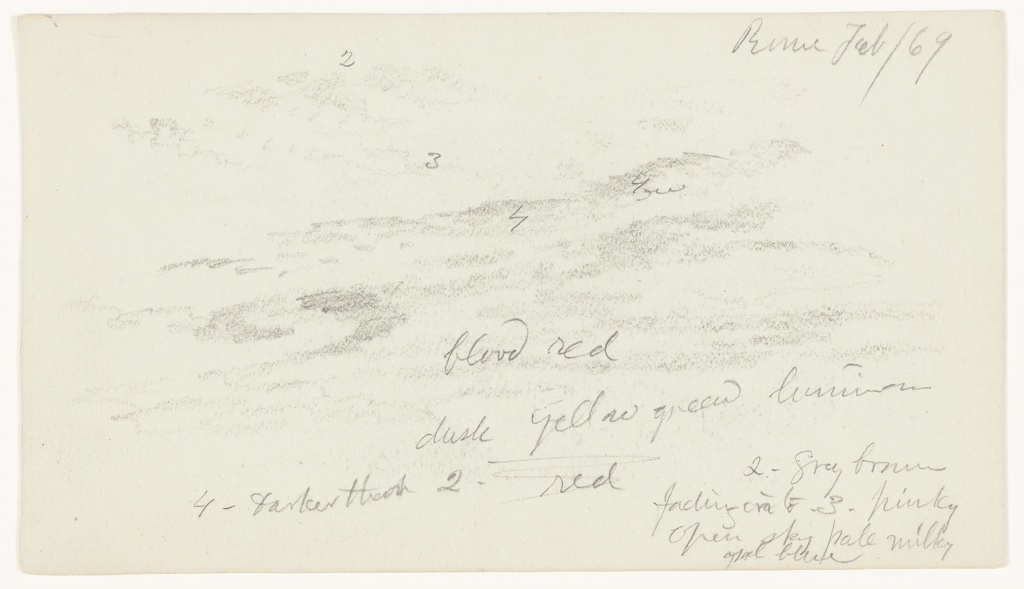 Rome Feb/69
2
3
4
blood red
dusk yellow green luminous
4 - Darker than 2 - red
2 - Grey brown
fading into - 3 - pinky
open sky pale milky
opal blue